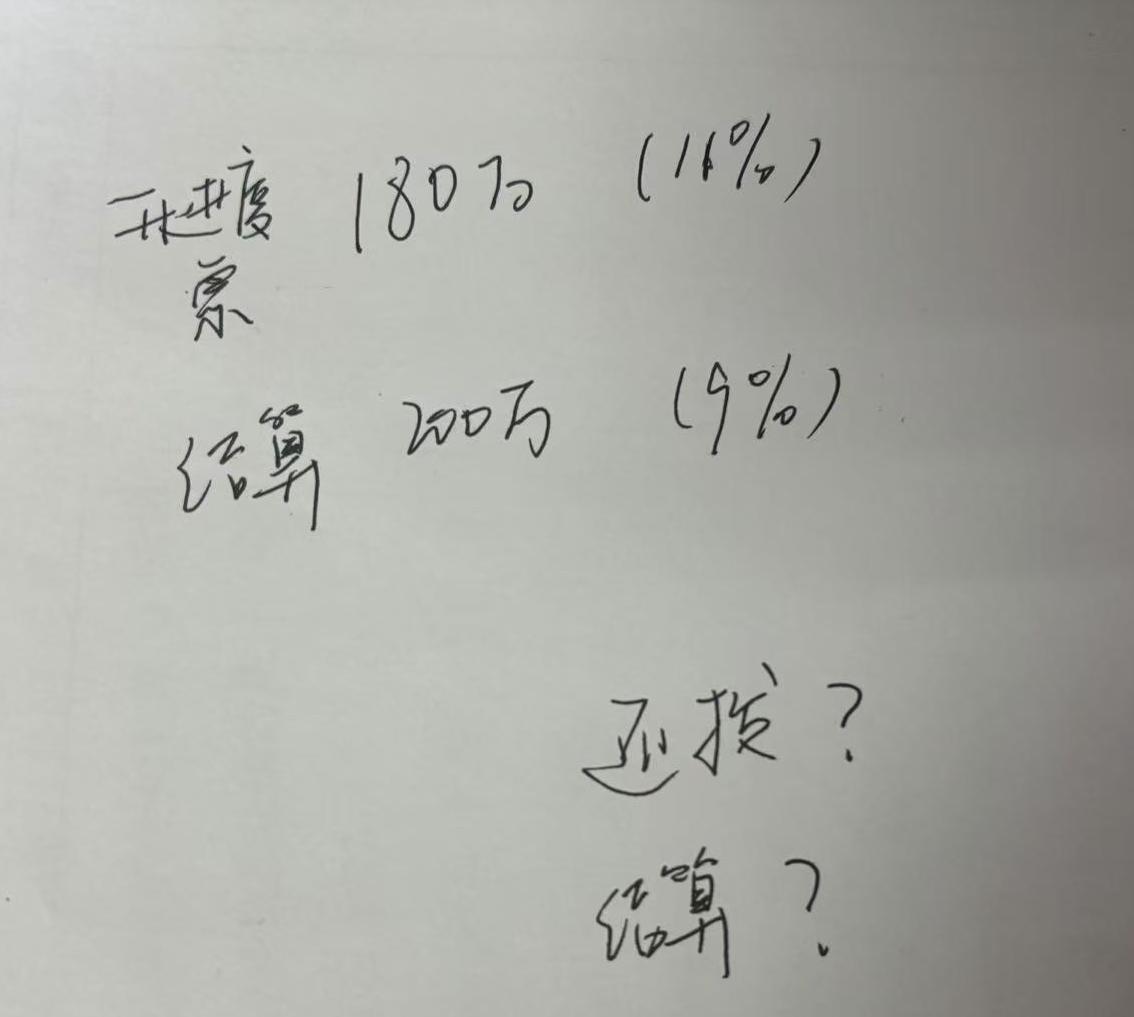 开进度 180万 (11%)
票
结算 200万 (9%)
还拨?
结算?